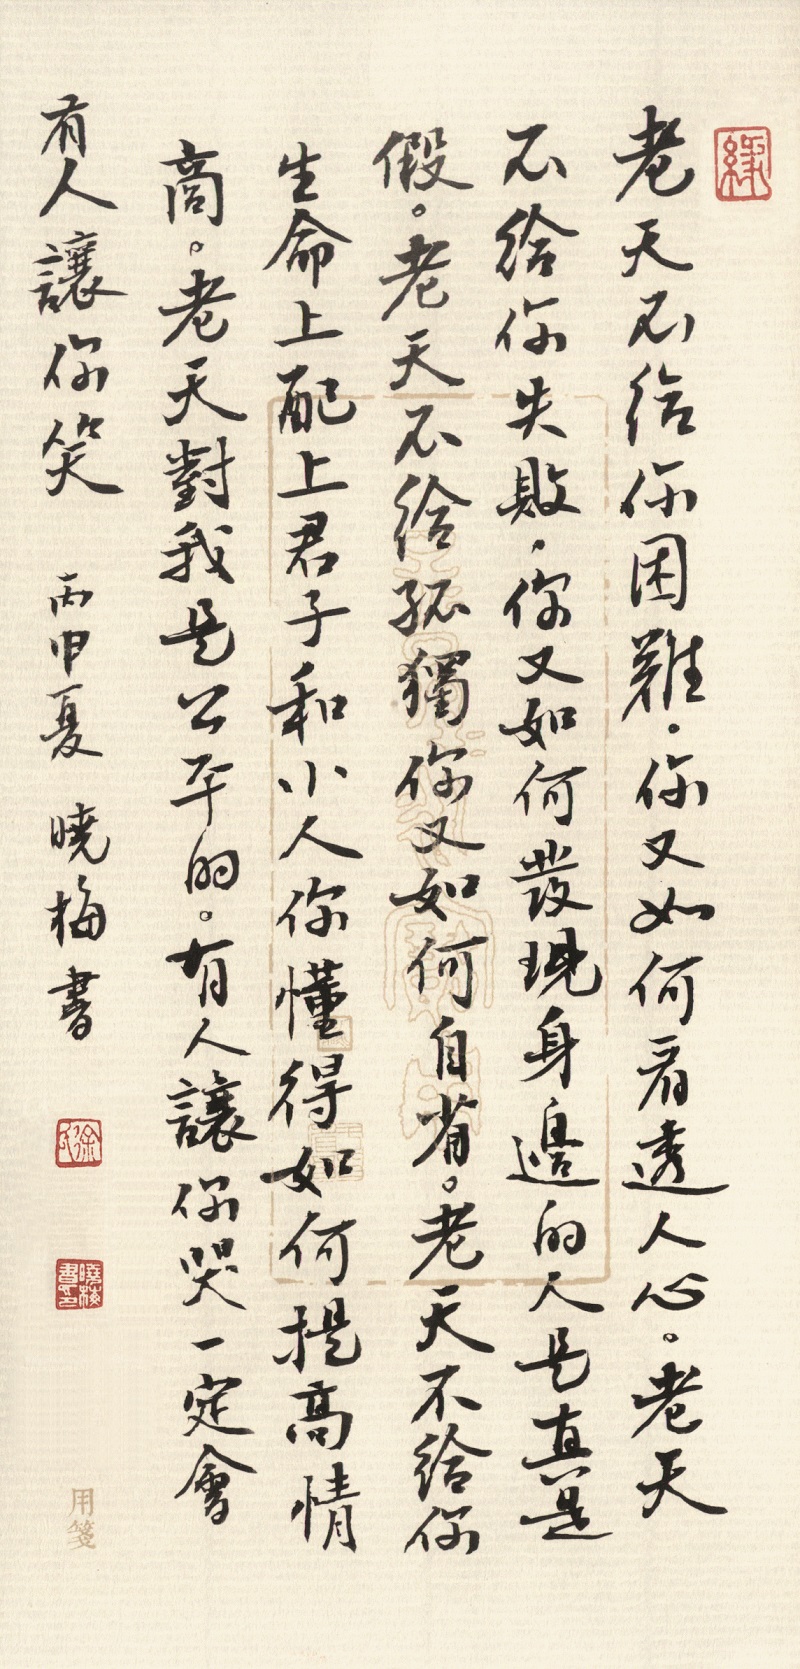 緣
老天不给你困難，你又如何看透人心。老天
不给你失敗，你又如何發現身邊的人是真是
假。老天不给孤獨你又如何自省。老天不给你
生命上配上君子和小人你懂得如何提高情
商。老天對我是公平的。有人讓你哭一定會
有人讓你笑 丙申夏 曉梅書
用箋